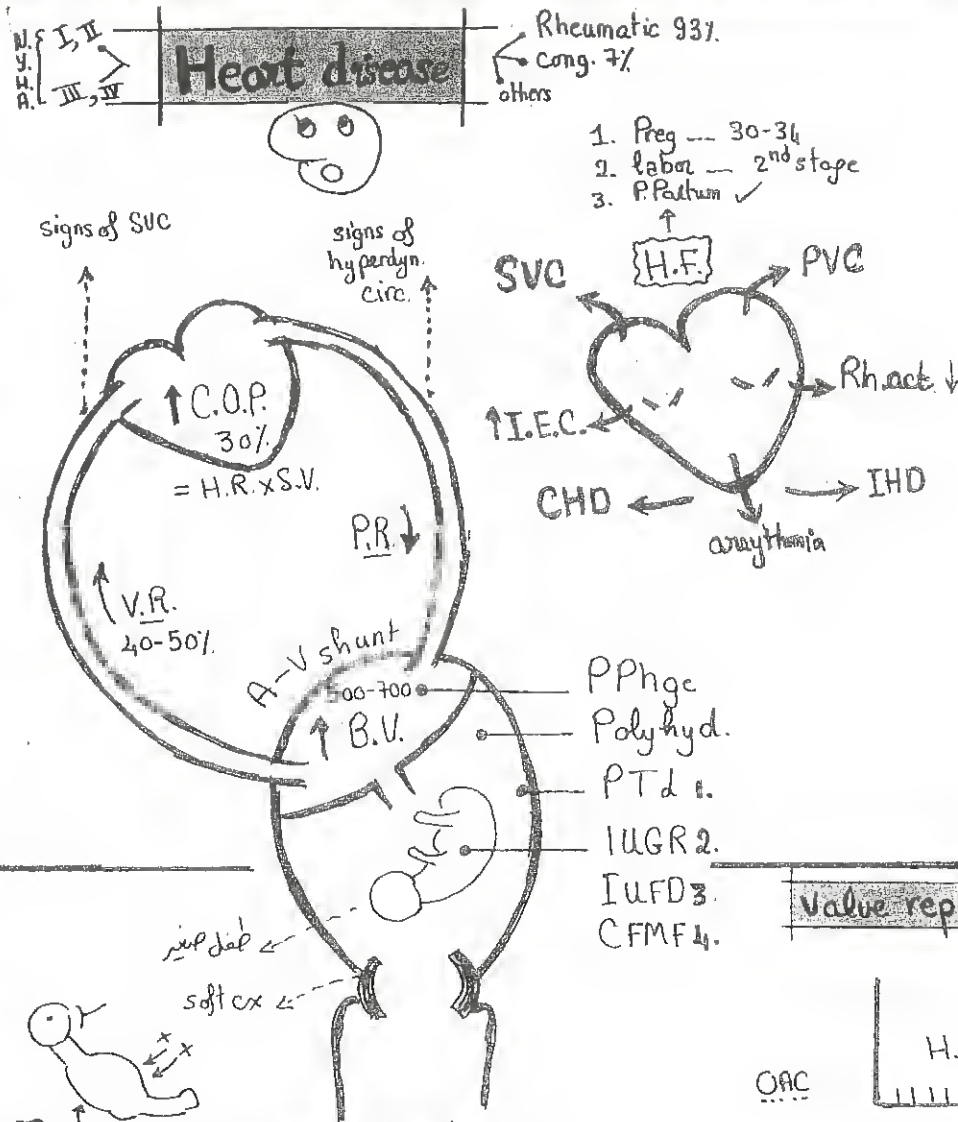 N.
Y.
H.
A.
I, II
III, IV
Heart disease
Rheumatic 93%
cong. 7%
others
1. Preg --- 30-34
2. labor --- 2nd stage
3. P.Partum ✓
H.F.
signs of SVC
signs of
hyperdyn.
circ.
SVC
PVC
Rh.act. ↓
↑ I.E.C.
CHD
IHD
↑ C.O.P.
30%
= H.R. x S.V.
P.R. ↓
↑ V.R.
40-50%
A-V shunt
500-700
↑ B.V.
PPhge
Polyhyd.
PTd 1.
IUGR 2.
IUFD 3.
CFMF 4.
طفل صغير
soft cx
Value rep
OAC
H.
x
x